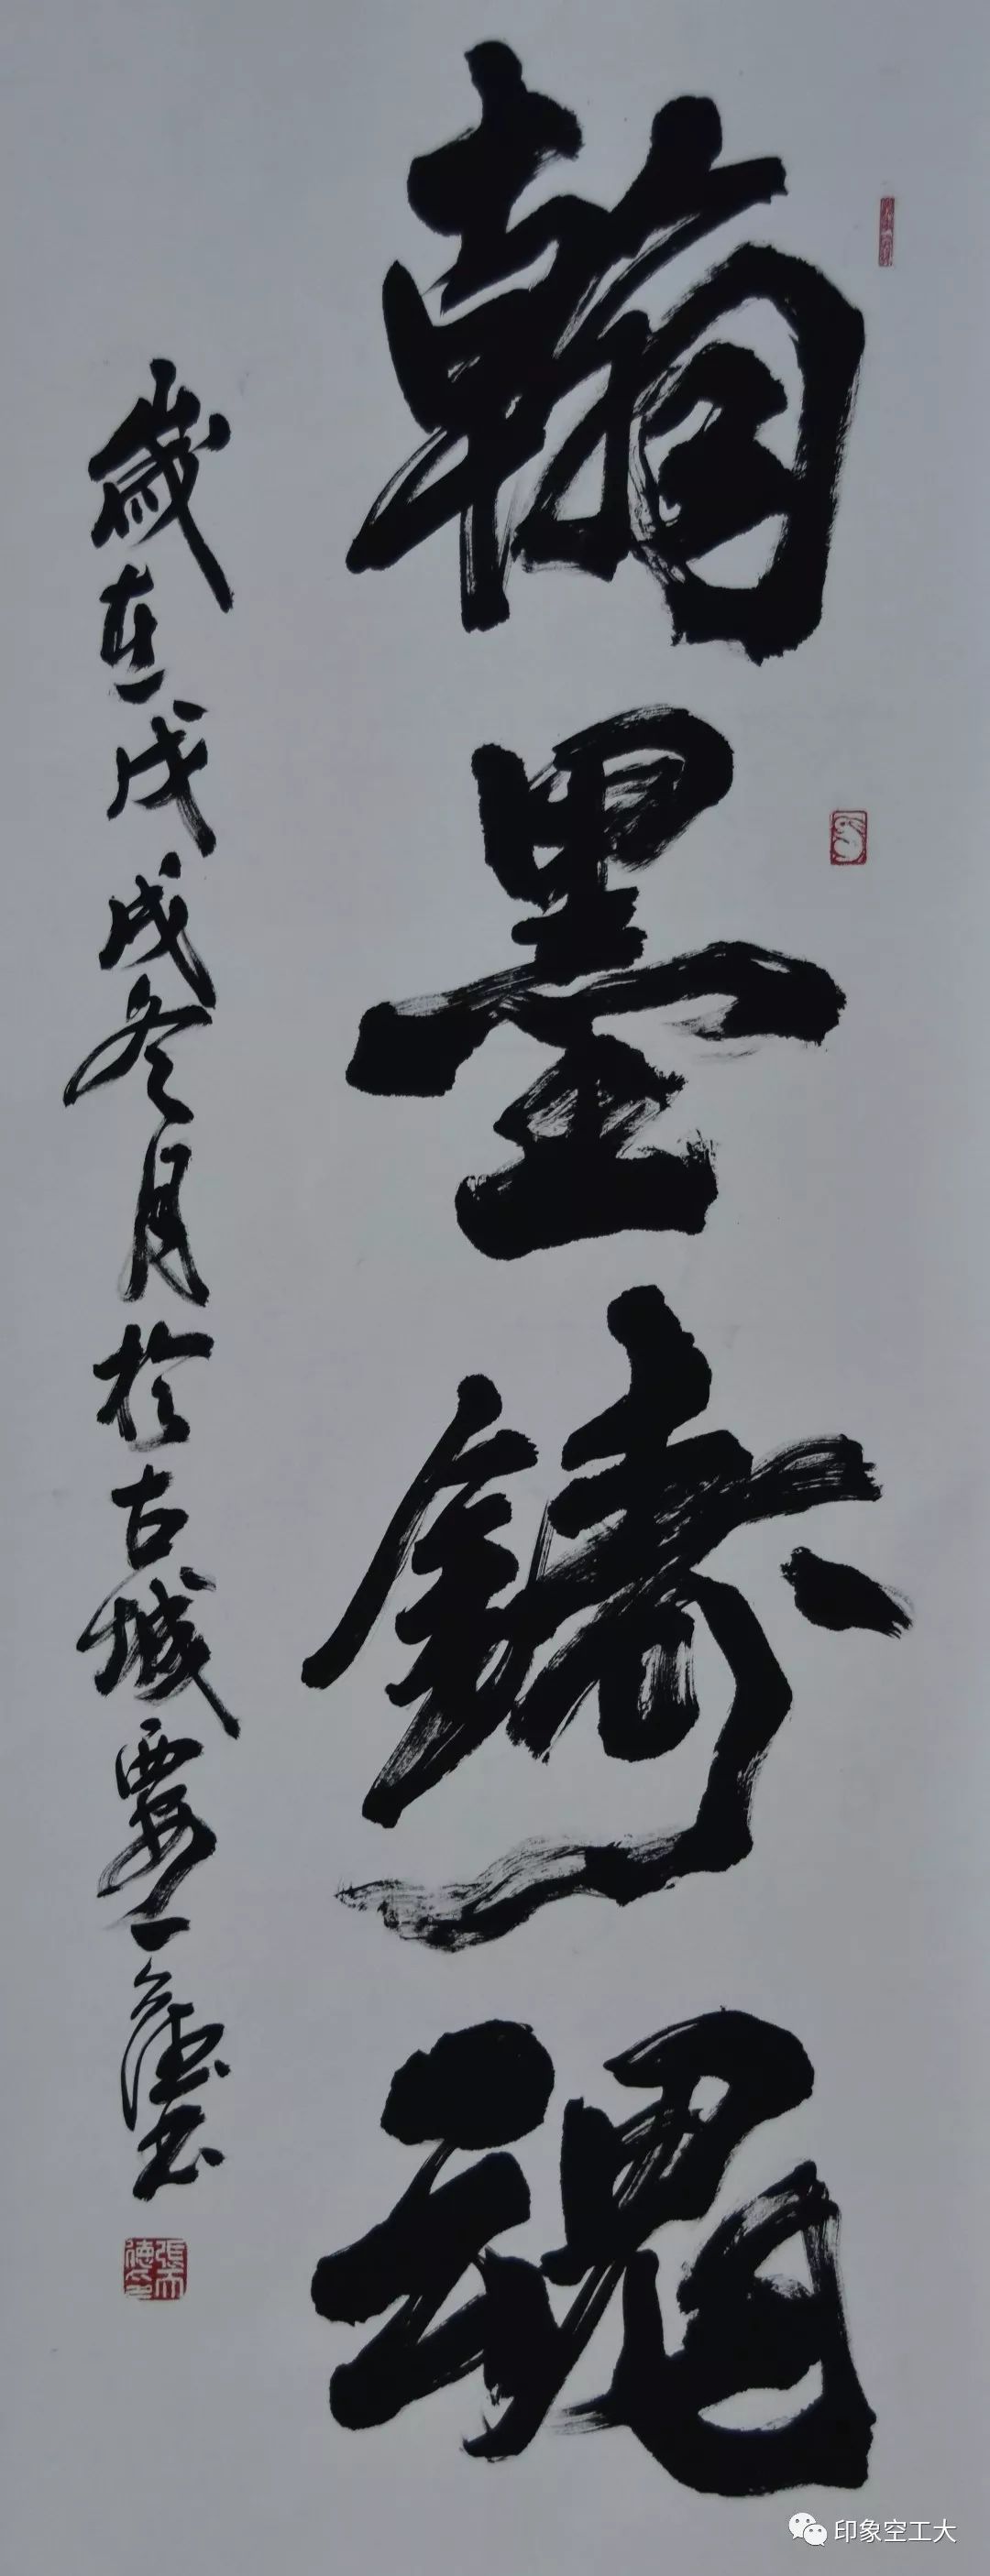 翰墨铸魂
歲在戊戌冬月於古城西安 天德书
張天德印
印象空工大